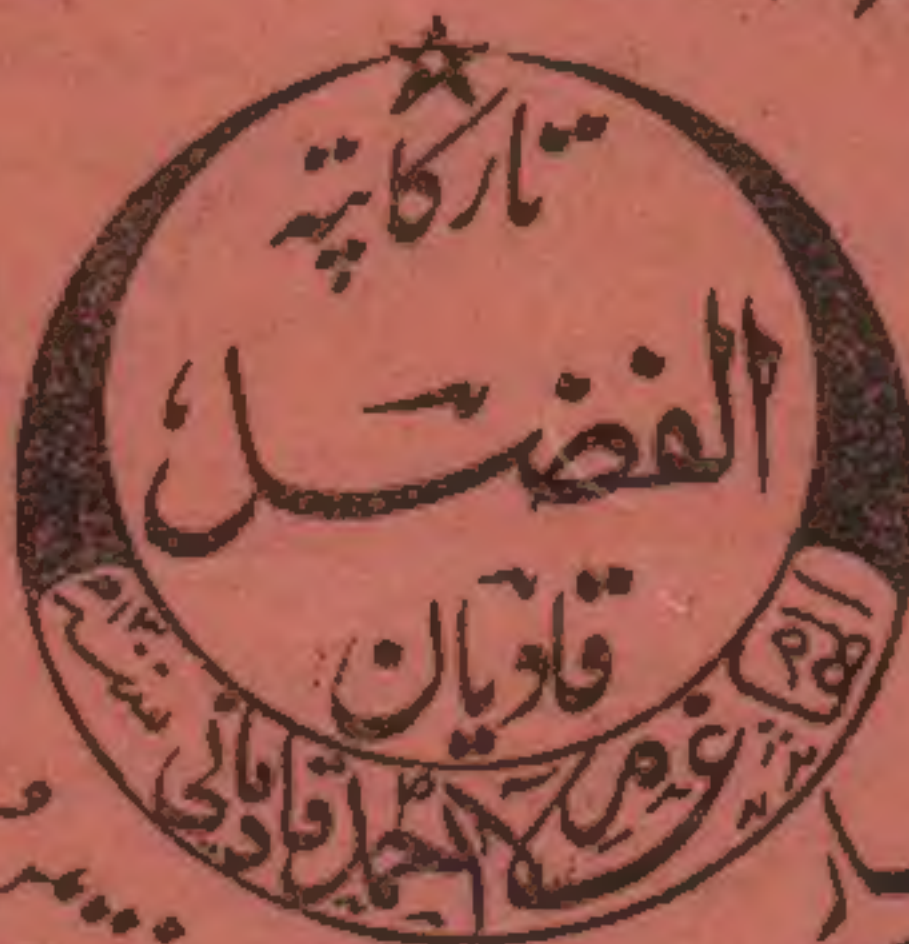 تار کا پتہ
الفضل
قادیان
غلام احمد قادیانی
۱۳۰۰